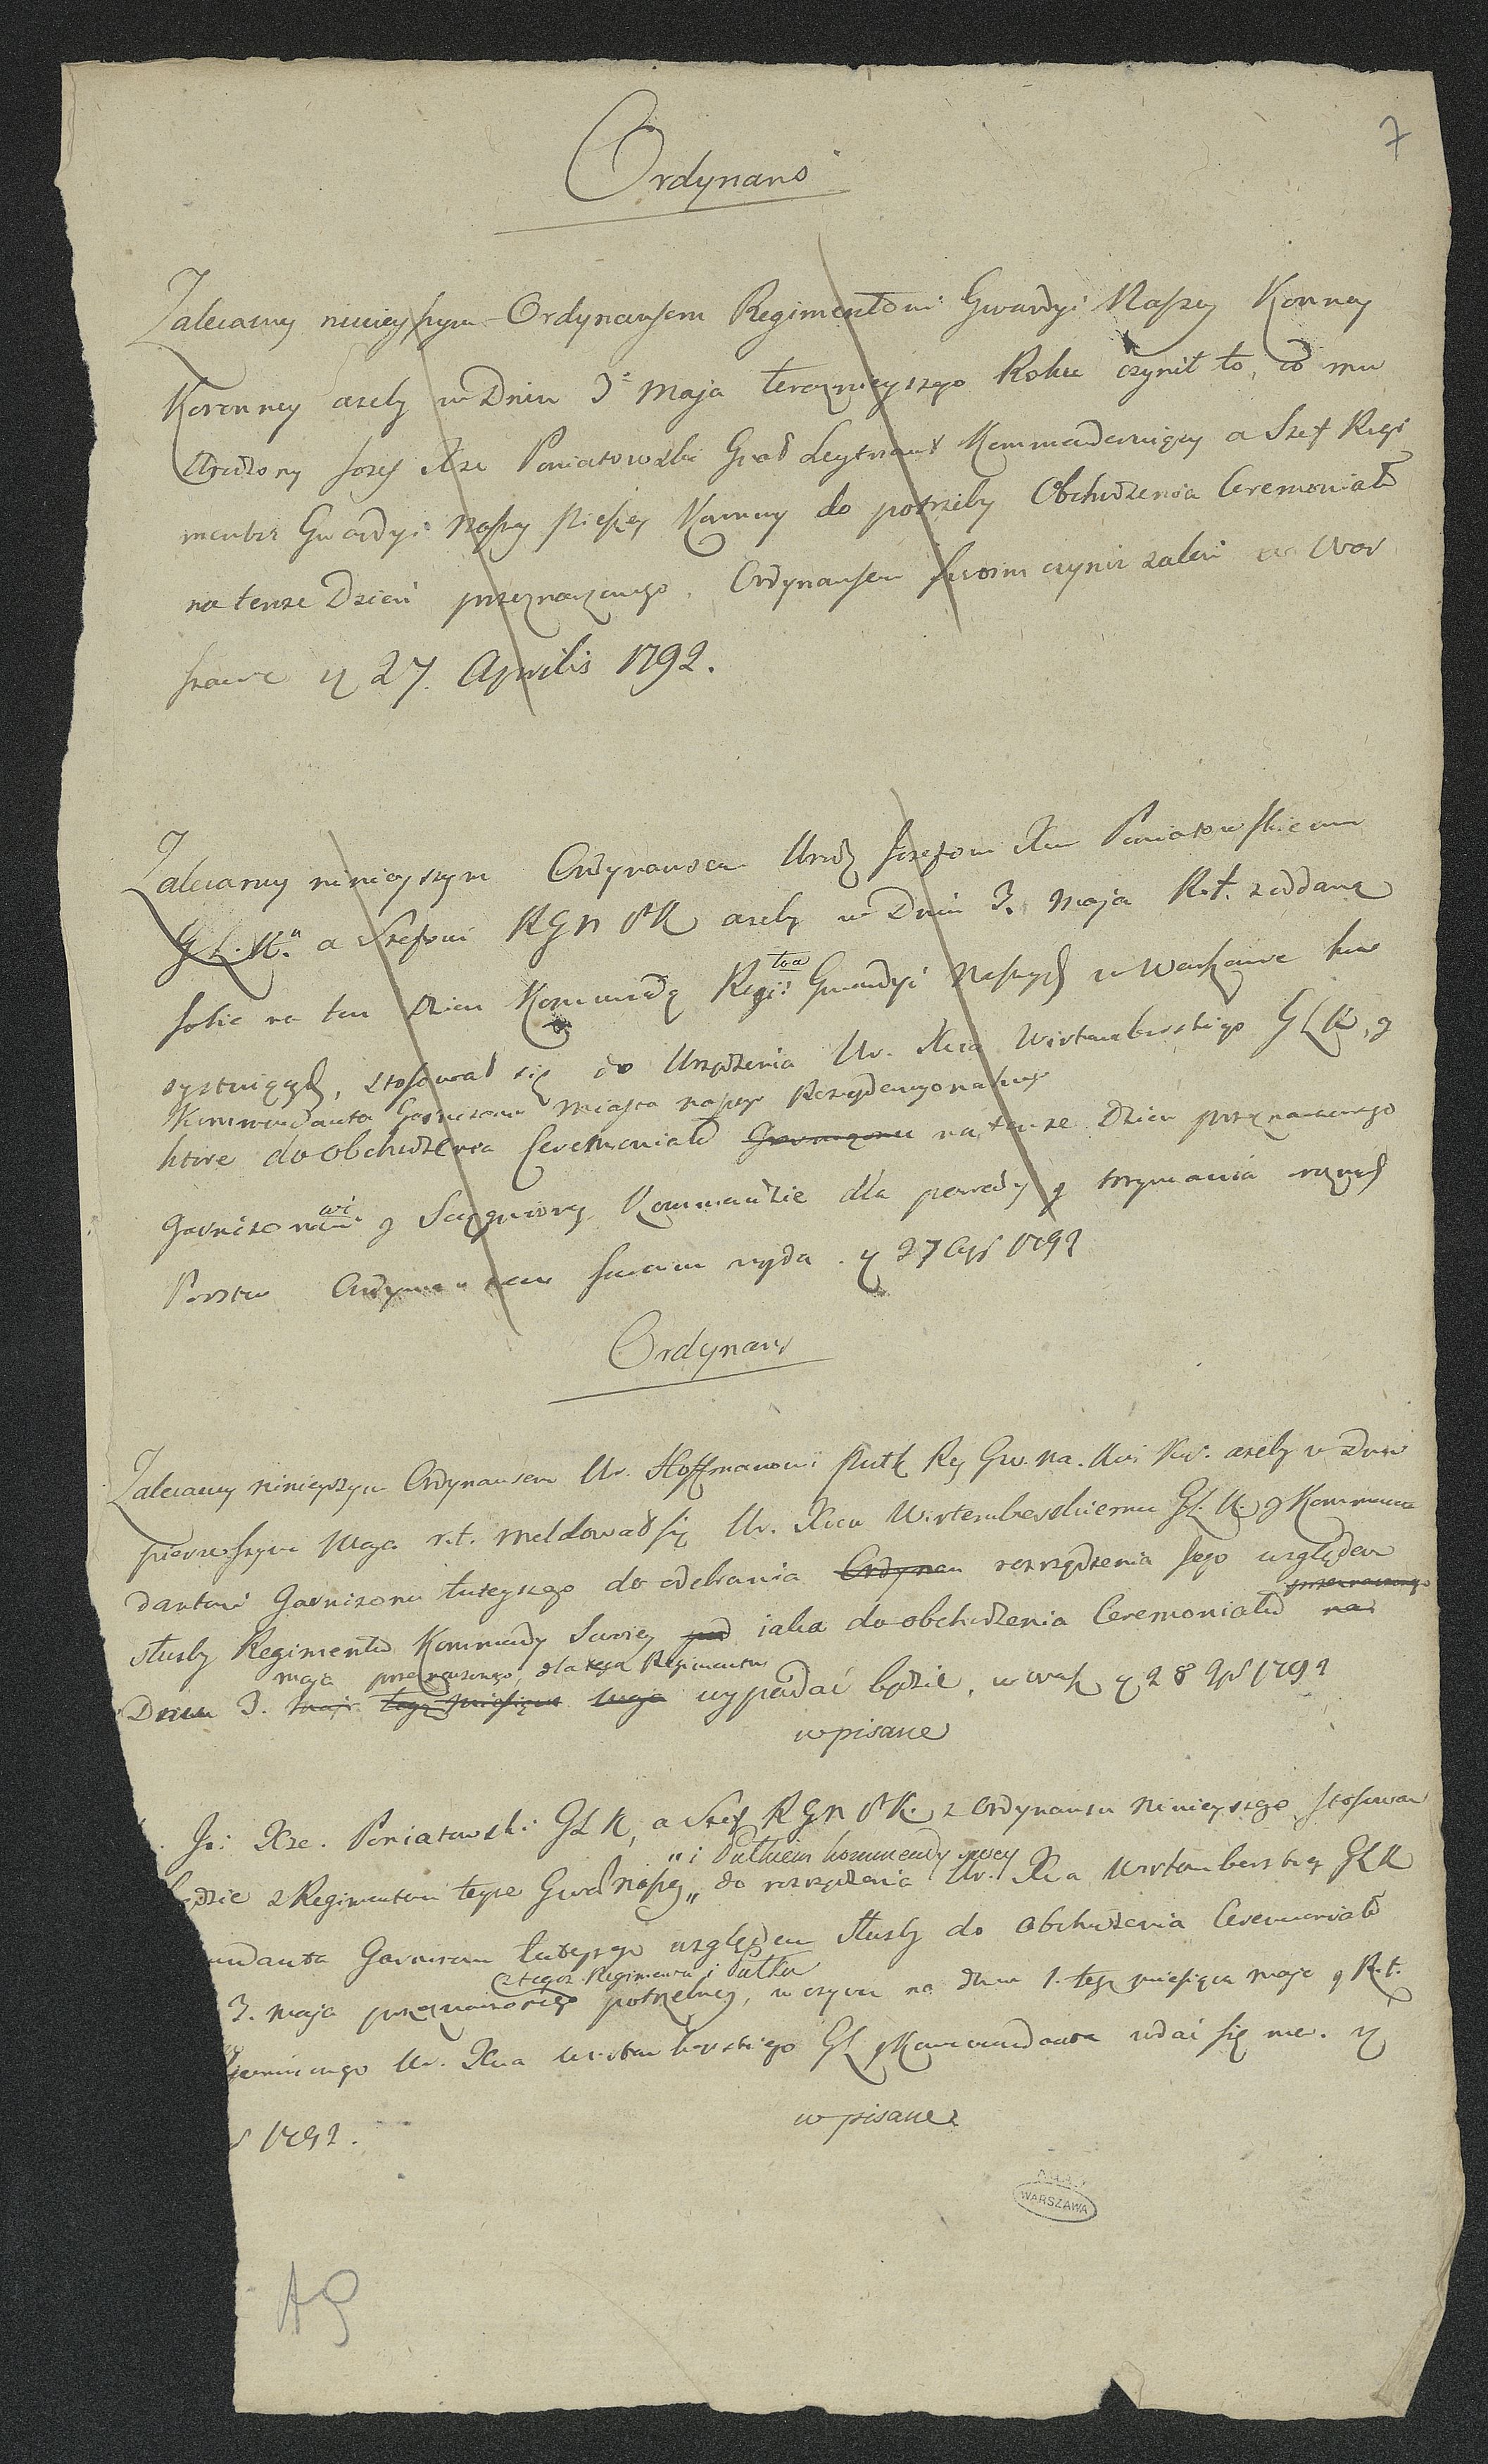 7
Ordynans
Zalecamy ninieyszym Ordynansem Regimentowi Gwardyi Naszey Konney
Koronney azeby w Dniu 3° Maja teraznieyszego Roku czynił to, co mu
Urodzony Jozef Xże Poniatowski Gnał Leytnant Kommenderuiący a Szef Regi
mentu Gwardyi Naszey Pieszey Koronney do potrzeby Obchodzenia Ceremoniału
na tenze Dzien przeznaczonego, Ordynansem swoim czynic zaleci w War
szawie d 27. Aprilis 1792.
Zalecamy ninieyszym Ordynansem Urodz Jozefowi Xciu Poniatowskiemu
G L. K. a Szefowi R G N P K azeby w Dniu 3. Maja R. t. zaddaną
sobie na ten Dzien Kommendę Regi: Gwardyi Naszych w Warszawie kon
systuiących, stosował się do Urządzenia Ur. Xcia Wirtemberskiego G L K, y
Kommendanta Garnizonu Miasta naszego Rezydencyonalnego
ktore do obchodzenia Ceremoniału Garnizonu na tenze Dzien przeznaczonego
Garnizonowi y Sciągnioney Kommendzie dla parady y trzymania
Ordynansem swoim wyda. d 27 Apr 1792
Ordynans
Zalecamy ninieyszym Ordynansem Ur. Hoffmanowi Pułk Reg Gw. na. azeby w Dniu
pierwszym Maja r. t. meldował się Ur. Xciu Wirtemberskiemu G L. K. y Kommen
dantowi Garnizonu tuteyszego do odebrania Ordynan rozrządzenia Jego względem
przeznaczonego
słuzby Regimentu Kommendy Swoiey pod iaka do obchodzenia Ceremoniału na
maja przeznaczonego, dla tego Regimentu
Dniu 3. maja tego miesiąca maja wypadać będzie, w Warsz d 28 Apr 1792
wpisane
Jo: Xże. Poniatowski G L K, a Szef R G N P K. z Ordynansu Ninieyszego stosować
„ i Pułkiem kommendy swey
będzie z Regimentem teyze Gward Naszey „ do rozrządzenia Ur. Xcia Wirtemberskiego G L K
mendanta Garnizonu tuteyszego względem służby do Obchodzenia Ceremoniału
z tegoz Regimentu i Pułku
3. Maja przeznaczonego potrzebney, w czym na dniu 1. tegoz miesiąca Maja y R. t.
Ur. Xcia Wirtemberskiego G L y Kommendanta udać się ma. d
1792.
wpisane
WARSZAWA